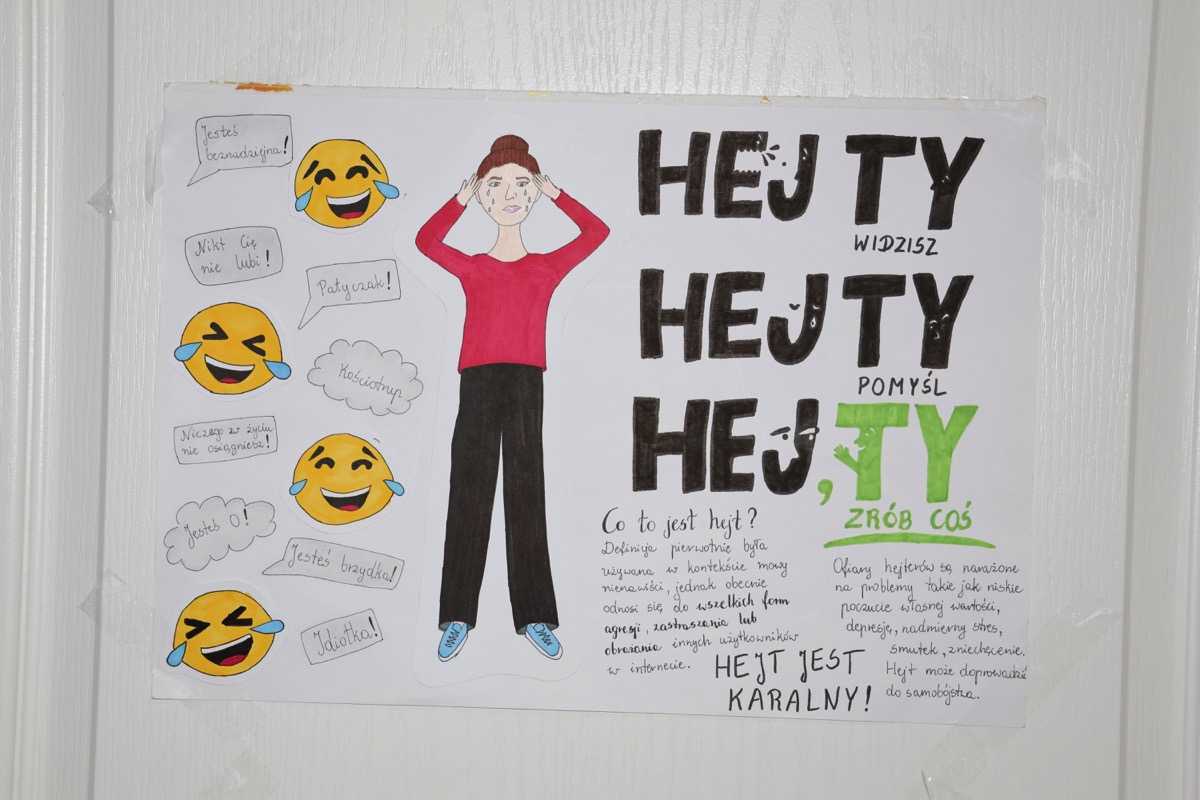 Jesteś
beznadziejna!
Nikt Cię
nie lubi!
Patyczak!
Kościotrup
Niczego w życiu
nie osiągniesz!
Jesteś 0!
Jesteś brzydka!
Idiotka!
HEJ TY
WIDZISZ
HEJ TY
POMYŚL
HEJ, TY
ZRÓB COŚ
Co to jest hejt?
Definicja pierwotnie była
używana w kontekście mowy
nienawiści, jednak obecnie
odnosi się do wszelkich form
agresji, zastraszenia lub
obrażania innych użytkowników
w internecie.
HEJT JEST
KARALNY!
Ofiary hejterów są narażone
na problemy takie jak niskie
poczucie własnej wartości,
depresję, nadmierny stres,
smutek, zniechęcenie.
Hejt może doprowadzić
do samobójstwa.